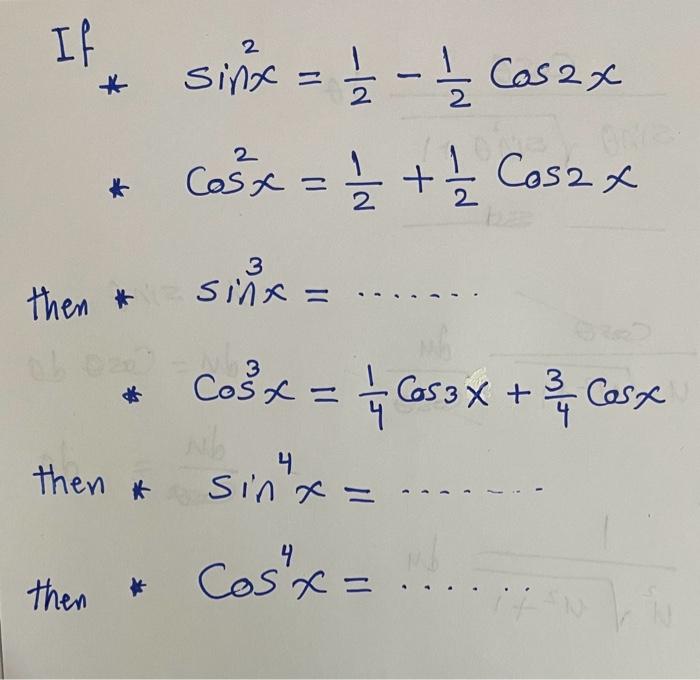 If
* sin²x = 1/2 - 1/2 Cos2x
* Cos²x = 1/2 + 1/2 Cos2x
then * sin³x = .......
* Cos³x = 1/4 Cos3x + 3/4 Cosx
then * sin⁴x = ........
then * Cos⁴x = .......